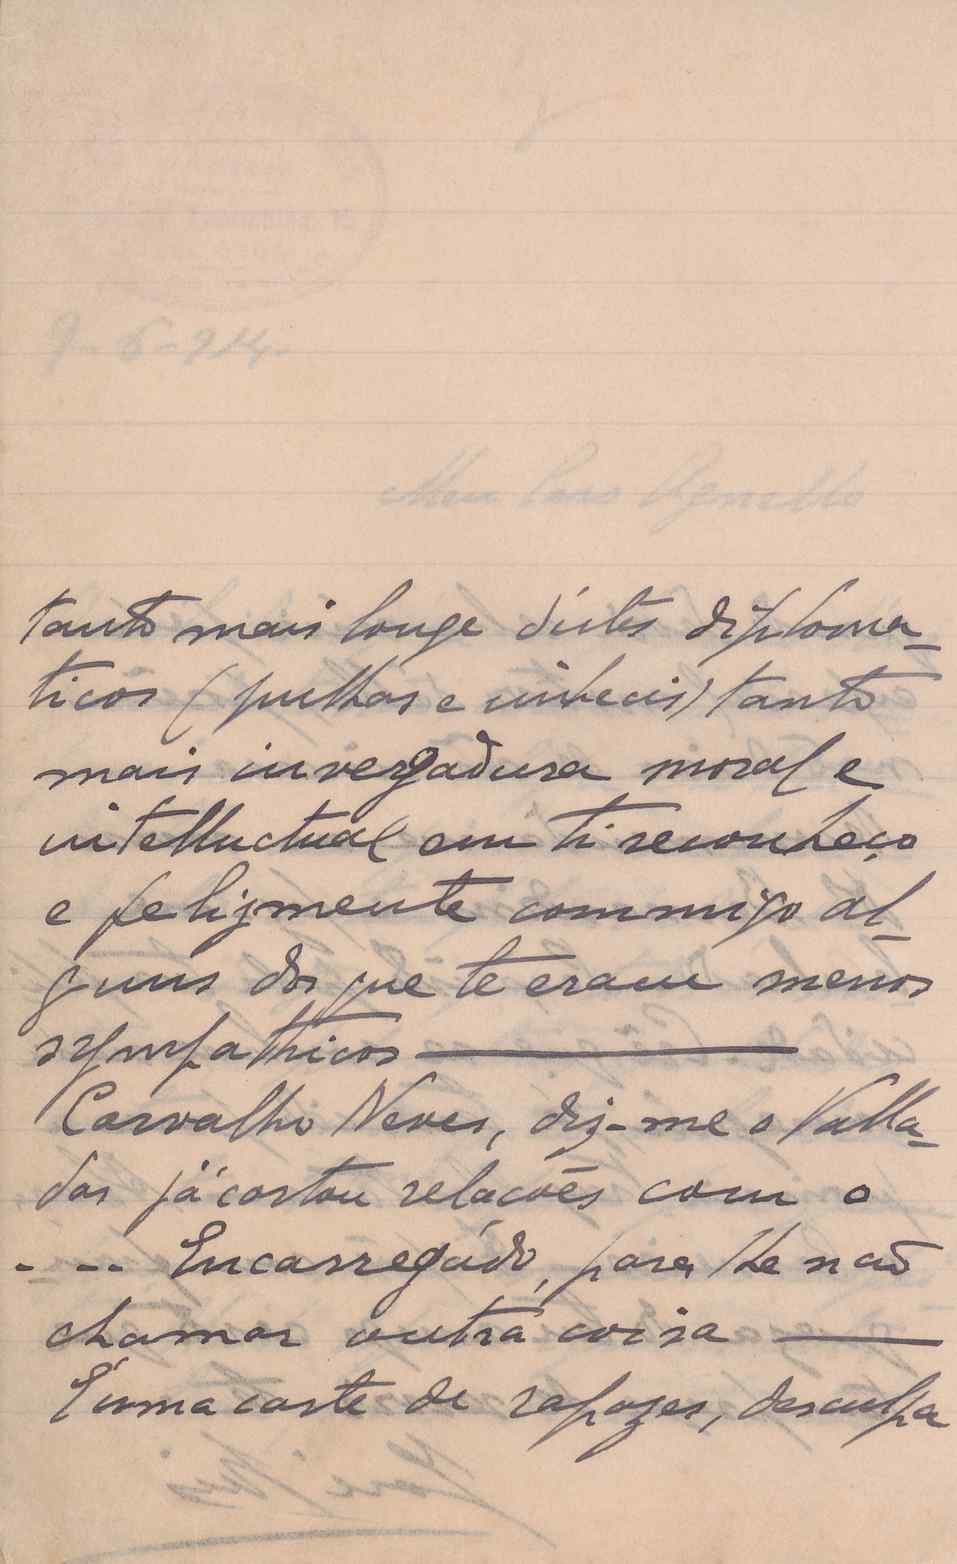 9-6-914.
Meu Caro Agnello
tanto mais longe d'istes diploma-
ticos (pulhas e imbecis) tanto
mais invergadura moral e
intelluctual em ti reconheço
e felizmente commigo al-
guns dos que te eram menos
sympathicos
Carvalho Neves, diz-me o Valla-
das já cortou relacões com o
... Encarregádo, para lhe não
chamar outra coisa
É uma corte de rapozes, desculpa